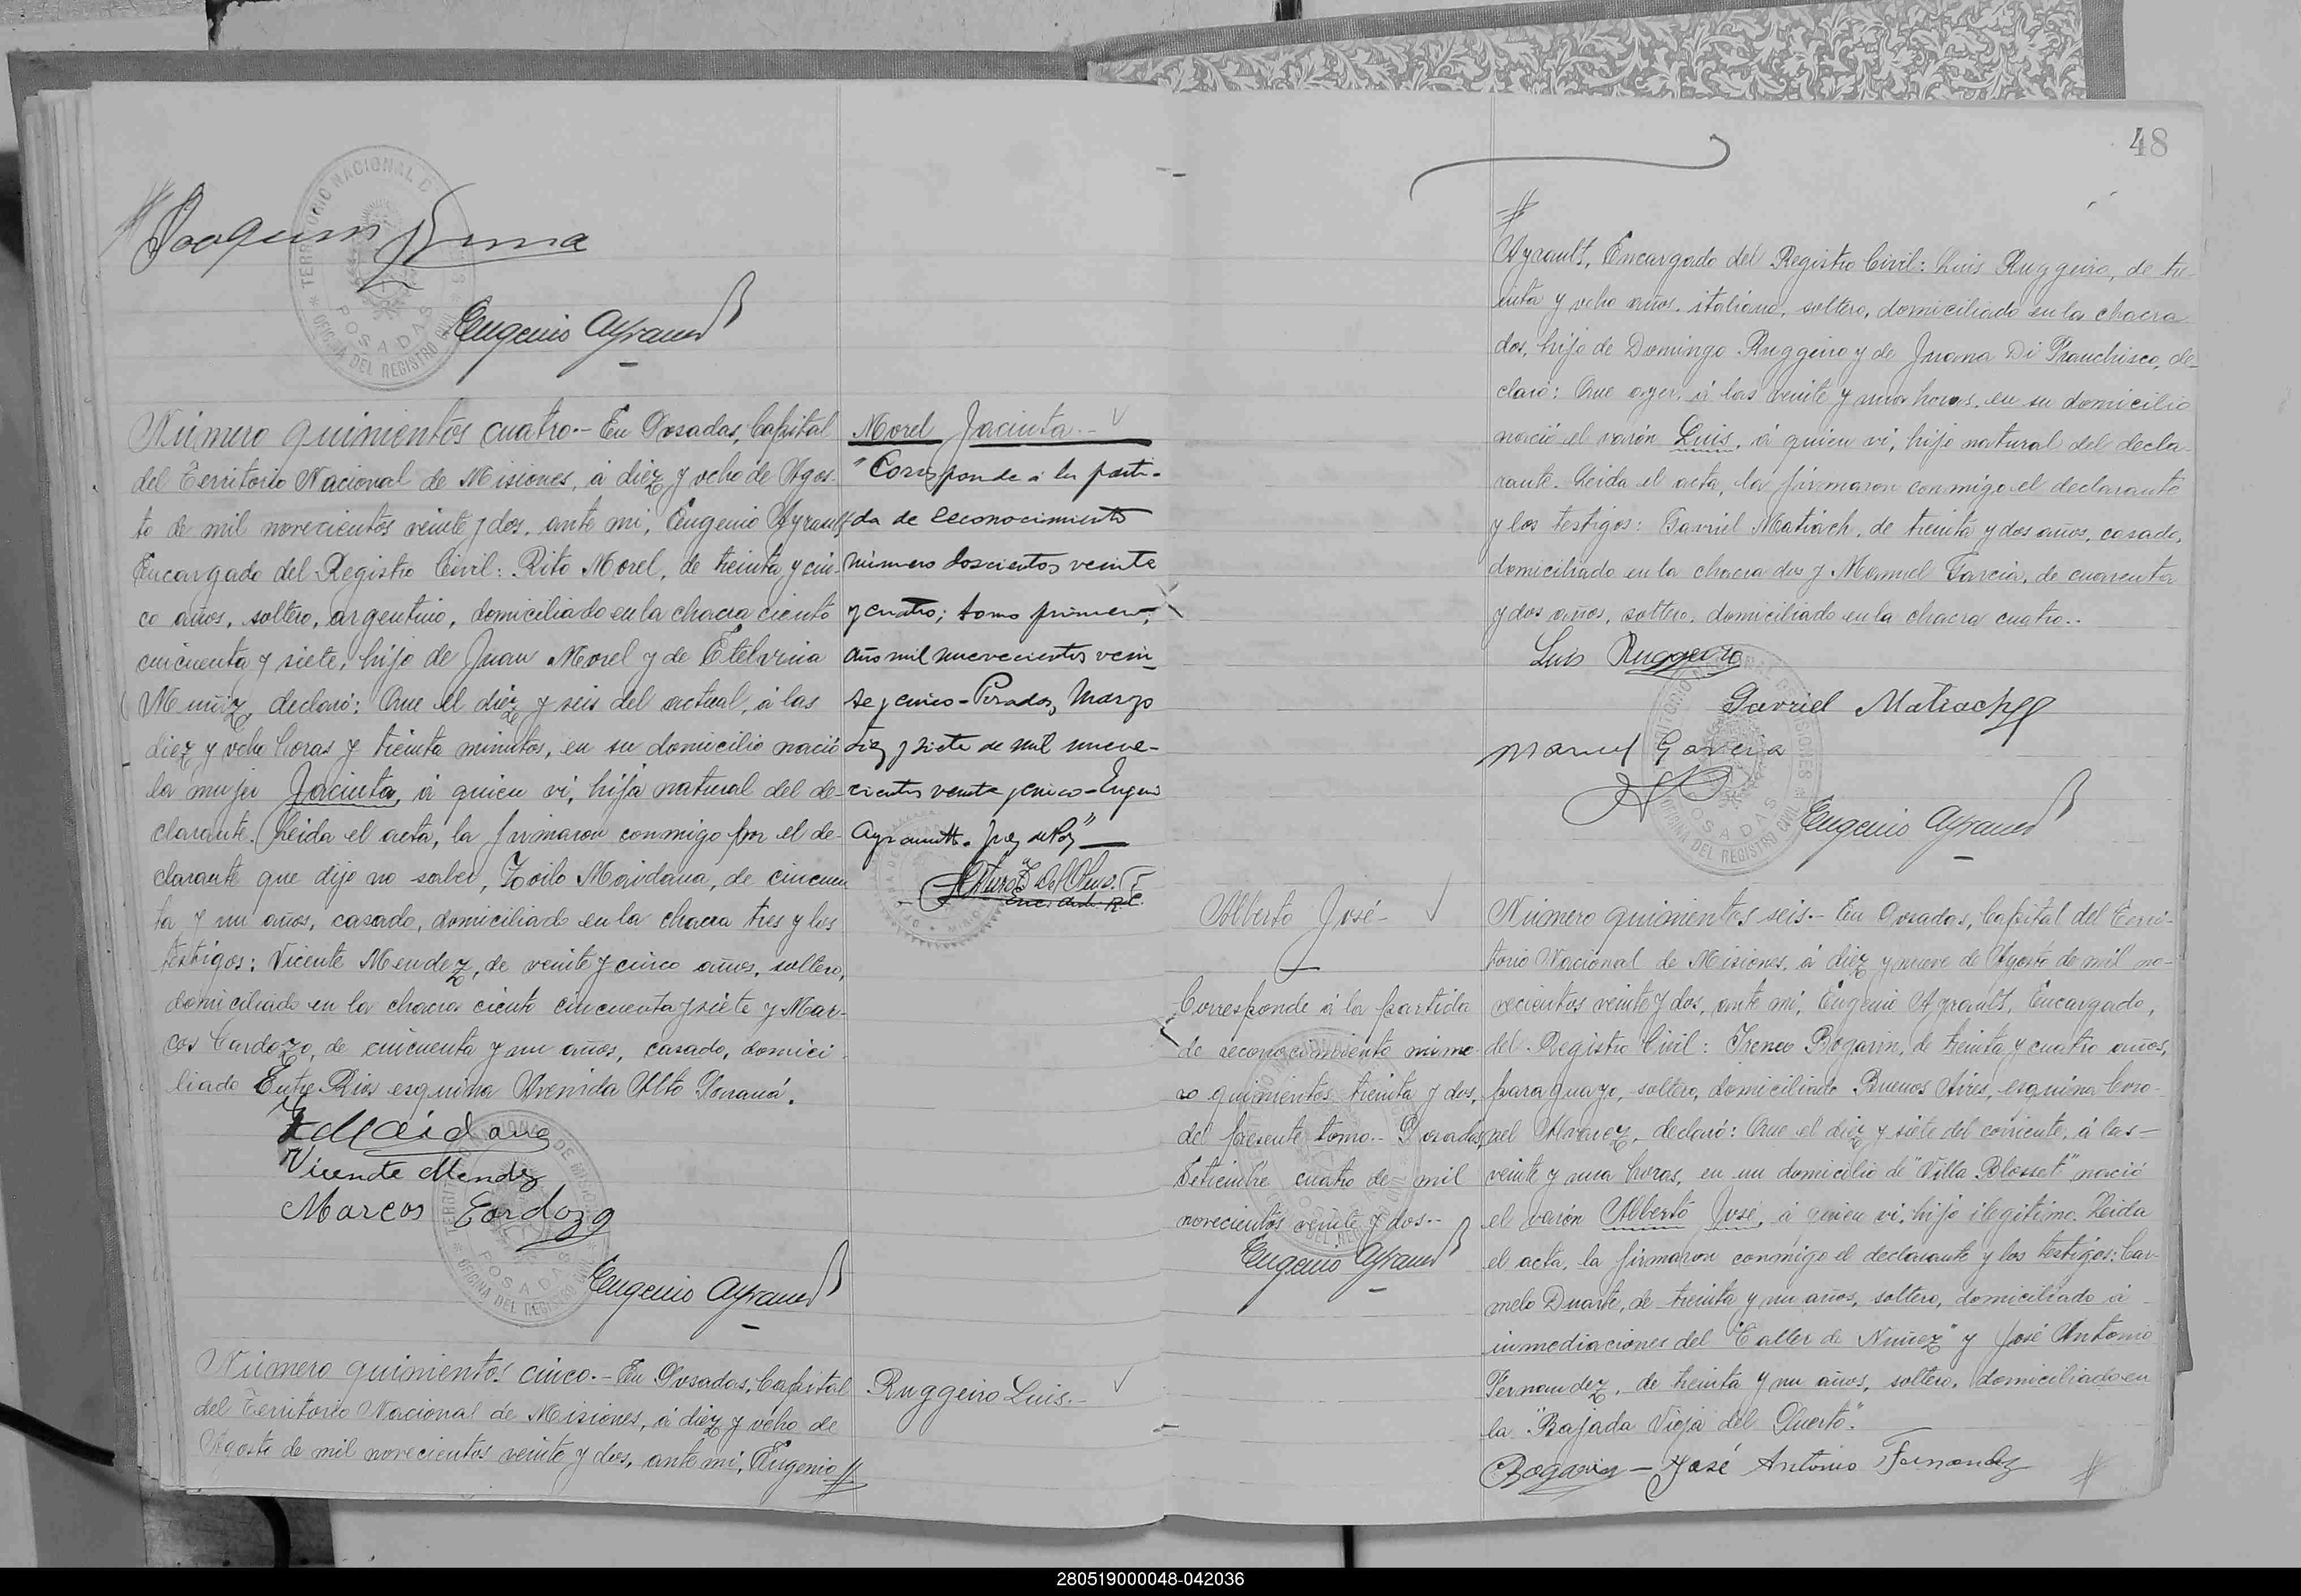 Joaquin
Eugenio Ayrault
Número quinientos cuatro.- En Posadas, Capital
del Territorio Nacional de Misiones, á diez y ocho de Agos-
to de mil novecientos veinte y dos, ante mi, Eugenio Ayrault,
Encargado del Registro Civil: Rito Morel, de treinta y cin-
co años, soltero, argentino, domiciliado en la chacra ciento
cincuenta y siete, hijo de Juan Morel y de Etelvina
Muñiz, declaró: Que el diez y seis del actual, á las
diez y ocho horas y treinta minutos, en su domicilio nació
la mujer Jacinta, á quien vi, hija natural del de-
clarante. Leida el acta, la firmaron conmigo por el de-
clarante que dijo no saber, Zoilo Maidana, de cincuen
ta y un años, casado, domiciliado en la chacra tres y los
testigos: Vicente Mendez, de veinte y cinco años, soltero,
domiciliado en la chacra ciento cincuenta y siete y Mar-
cos Cardozo, de cincuenta y un años, casado, domici-
liado Entre Rios esquina Avenida Alto Paraná.
Z Maidana
Vicente Mendez
Marcos Cardozo
Eugenio Ayrault
Número quinientos cinco.- En Posadas, Capital
del Territorio Nacional de Misiones, á diez y ocho de
Agosto de mil novecientos veinte y dos, ante mi, Eugenio //
Morel Jacinta.-
"Corresponde á la parti-
da de reconocimiento
número doscientos veinte
y cuatro; tomo primero,
año mil nuevecientos vein
te y cinco - Posadas, Marzo
diez y siete de mil nueve-
cientos veinte y cinco - Eugenio
Ayrault. Juez de Paz"
Enc. del R. C.
Ruggeiro Luis.-
48
//
Ayrault, Encargado del Registro Civil: Luis Ruggeiro, de tre-
inta y ocho años, italiano, soltero, domiciliado en la chacra
dos, hijo de Domingo Ruggeiro y de Juana Di Franchisco, de-
claró: Que ayer, á las veinte y una horas, en su domicilio
nació el varón Luis, á quien vi, hijo natural del decla-
rante. Leida el acta, la firmaron conmigo el declarante
y los testigos: Gavriel Matiach, de treinta y dos años, casado,
domiciliado en la chacra dos y Manuel Garcia, de cuarenta
y dos años, soltero, domiciliado en la chacra cuatro..
Luis Ruggeiro
Gavriel Matiach
Manuel Garcia
Eugenio Ayrault
Alberto José-
Corresponde á la partida
de reconocimiento núme-
ro quinientos treinta y dos,
del presente tomo.- Posadas,
Setiembre cuatro de mil
novecientos veinte y dos.-
Eugenio Ayrault
Número quinientos seis.- En Posadas, Capital del Terri-
torio Nacional de Misiones, á diez y nueve de Agosto de mil no-
vecientos veinte y dos, ante mi, Eugenio Ayrault, Encargado,
del Registro Civil: Ireneo Bogarin, de treinta y cuatro años,
paraguayo, soltero, domiciliado Buenos Aires, esquina Coro-
nel Alvarez, declaró: Que el diez y siete del corriente, á las-
veinte y una horas, en un domicilio de "Villa Blosset" nació
el varón Alberto José, á quien vi, hijo ilegitimo. Leida
el acta, la firmaron conmigo el declarante y los testigos: Car-
melo Duarte, de treinta y un años, soltero, domiciliado á
inmediaciones del "Taller de Nuñez" y José Antonio
Fernandez, de treinta y un años, soltero, domiciliado en
la "Bajada Vieja del Puerto".
Bogarin - José Antonio Fernandez //
280519000048-042036